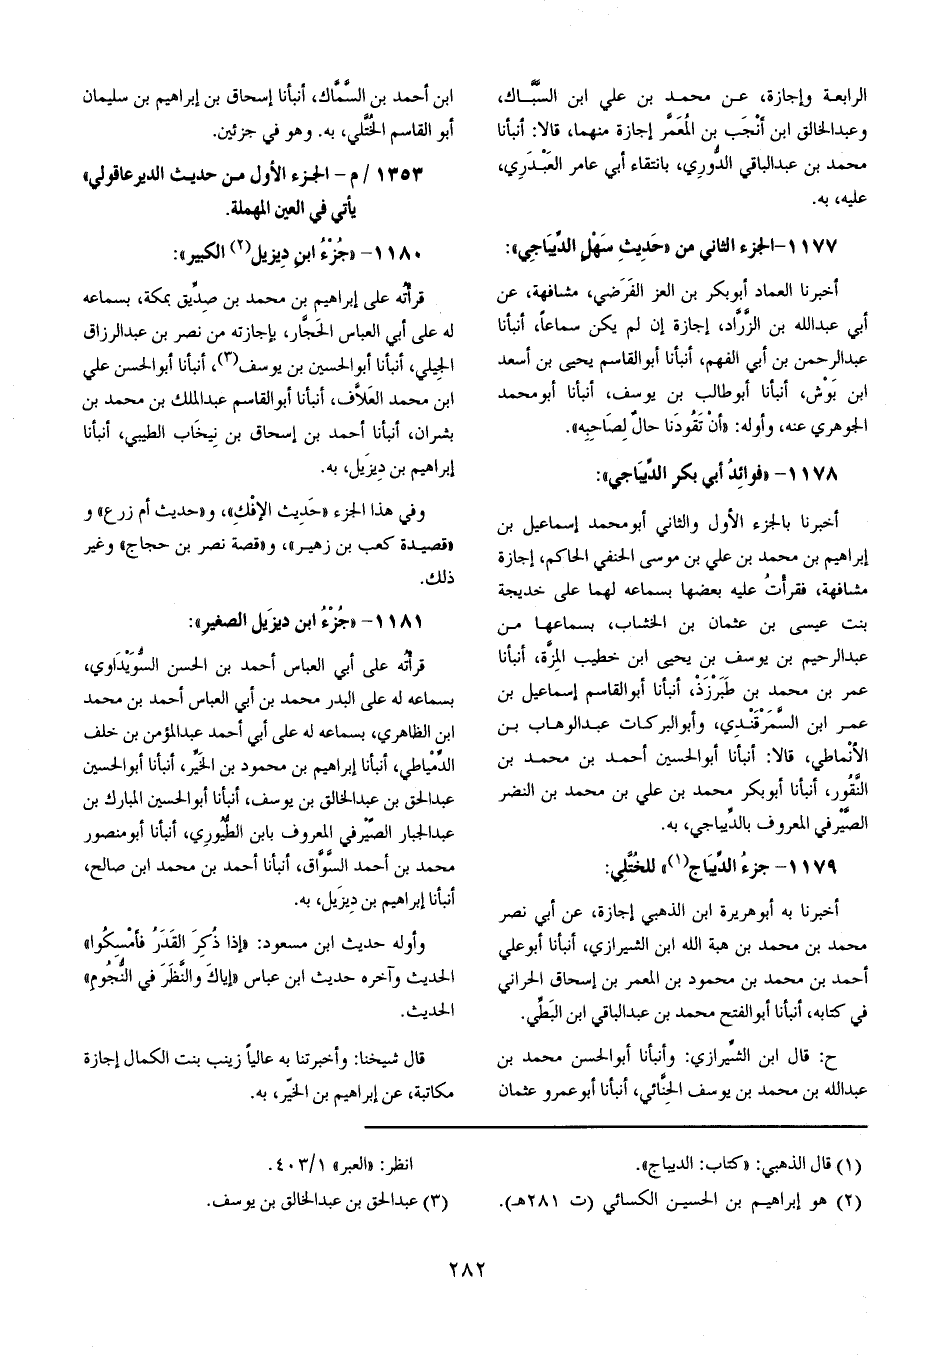 الرابعة وإجازة، عن محمد بن علي ابن السَّبَّاك،
وعبدالخالق ابن أَنْجَب بن المُعَمَّر إجازة منهما، قالا: أنبأنا
محمد بن عبدالباقي الدُّوري، بانتقاء أبي عامر العَبْدَري،
عليه، به.
١١٧٧-الجزء الثاني من «حَدِيثِ سَهْلٍ الدِّيبَاجي»:
أخبرنا العماد أبوبكر بن العز الفَرَضي، مشافهة، عن
أبي عبدالله بن الزَّرَّاد، إجازة إن لم يكن سماعاً، أنبأنا
عبدالرحمن بن أبي الفهم، أنبأنا أبوالقاسم يحيى بن أسعد
ابن بَوْش، أنبأنا أبوطالب بن يوسف، أنبأنا أبومحمد
الجوهري عنه، وأوله: «أنْ تَقُودَنا حالٌ لِصَاحِبِه».
١١٧٨- «فوائدُ أبي بكرٍ الدِّيبَاجي»:
أخبرنا بالجزء الأول والثاني أبومحمد إسماعيل بن
إبراهيم بن محمد بن علي بن موسى الحنفي الحاكم، إجازة
مشافهة، فقرأتُ عليه بعضها بسماعه لهما على خديجة
بنت عيسى بن عثمان بن الخشاب، بسماعها من
عبدالرحيم بن يوسف بن يحيى ابن خطيب المِزَّة، أنبأنا
عمر بن محمد بن طَبَرْزَذْ، أنبأنا أبوالقاسم إسماعيل بن
عمر ابن السَّمَرْقَنْدي، وأبوالبركات عبدالوهاب بن
الأنْماطي، قالا: أنبأنا أبوالحسين أحمد بن محمد بن
النَّقُور، أنبأنا أبوبكر محمد بن علي بن محمد بن النضر
الصَّيْرفي المعروف بالدِّيباجي، به.
١١٧٩- جزءُ الدِّيبَاج(١)» للخُتَّلي:
أخبرنا به أبوهريرة ابن الذهبي إجازة، عن أبي نصر
محمد بن محمد بن هبة الله ابن الشيرازي، أنبأنا أبوعلي
أحمد بن محمد بن محمود بن المعمر بن إسحاق الحراني
في كتابه، أنبأنا أبوالفتح محمد بن عبدالباقي ابن البَطِّي.
ح: قال ابن الشِّيرازي: وأنبأنا أبوالحسن محمد بن
عبدالله بن محمد بن يوسف الحِنَّائي، أنبأنا أبوعمرو عثمان
ابن أحمد بن السَّمَّاك، أنبأنا إسحاق بن إبراهيم بن سليمان
أبو القاسم الخُتَّلي، به. وهو في جزئين.
١٣٥٣/ م- الجزء الأول من حديث الديرعاقولي»
يأتي في العين المهملة.
١١٨٠- «جُزْءُ ابنِ دِيزيل(٢) الكبير»:
قرأتُه على إبراهيم بن محمد بن صِدِّيق بمكة، بسماعه
له على أبي العباس الحَجَّار، بإجازته من نصر بن عبدالرزاق
الجِيلي، أنبأنا أبوالحسين بن يوسف(٣)، أنبأنا أبوالحسن علي
ابن محمد العَلاَّف، أنبأنا أبوالقاسم عبدالملك بن محمد بن
بشران، أنبأنا أحمد بن إسحاق بن نيخَاب الطيبي، أنبأنا
إبراهيم بن دِيزَيل، به.
وفي هذا الجزء «حَدِيث الإفْك»، و«حديث أم زرع» و
«قصيدة كعب بن زهير»، و«قصة نصر بن حجاج» وغير
ذلك.
١١٨١- «جُزْءُ ابن ديزَيل الصغير»:
قرأتُه على أبي العباس أحمد بن الحسن السُّوَيْدَاوي،
بسماعه له على البدر محمد بن أبي العباس أحمد بن محمد
ابن الظاهري، بسماعه له على أبي أحمد عبدالمؤمن بن خلف
الدِّمْياطي، أنبأنا إبراهيم بن محمود بن الخَيِّر، أنبأنا أبوالحسين
عبدالحق بن عبدالخالق بن يوسف، أنبأنا أبوالحسين المبارك بن
عبدالجبار الصَّيْرفي المعروف بابن الطُّيُوري، أنبأنا أبومنصور
محمد بن أحمد السَّوَّاق، أنبأنا أحمد بن محمد ابن صالح،
أنبأنا إبراهيم بن دِيزَيل، به.
وأوله حديث ابن مسعود: «إذا ذُكِرَ القَدَرُ فأمْسِكُوا»
الحديث وآخره حديث ابن عباس «إياكَ والنَّظَرَ في النُّجُومِ»
الحديث.
قال شيخنا: وأخبرتنا به عالياً زينب بنت الكمال إجازة
مكاتبة، عن إبراهيم بن الخَيِّر، به.
(١) قال الذهبي: «كتاب: الديباج».
(٢) هو إبراهيم بن الحسين الكسائي (ت ٢٨١هـ).
انظر: «العبر» ٤٠٣/١.
(٣) عبدالحق بن عبدالخالق بن يوسف.
٢٨٢